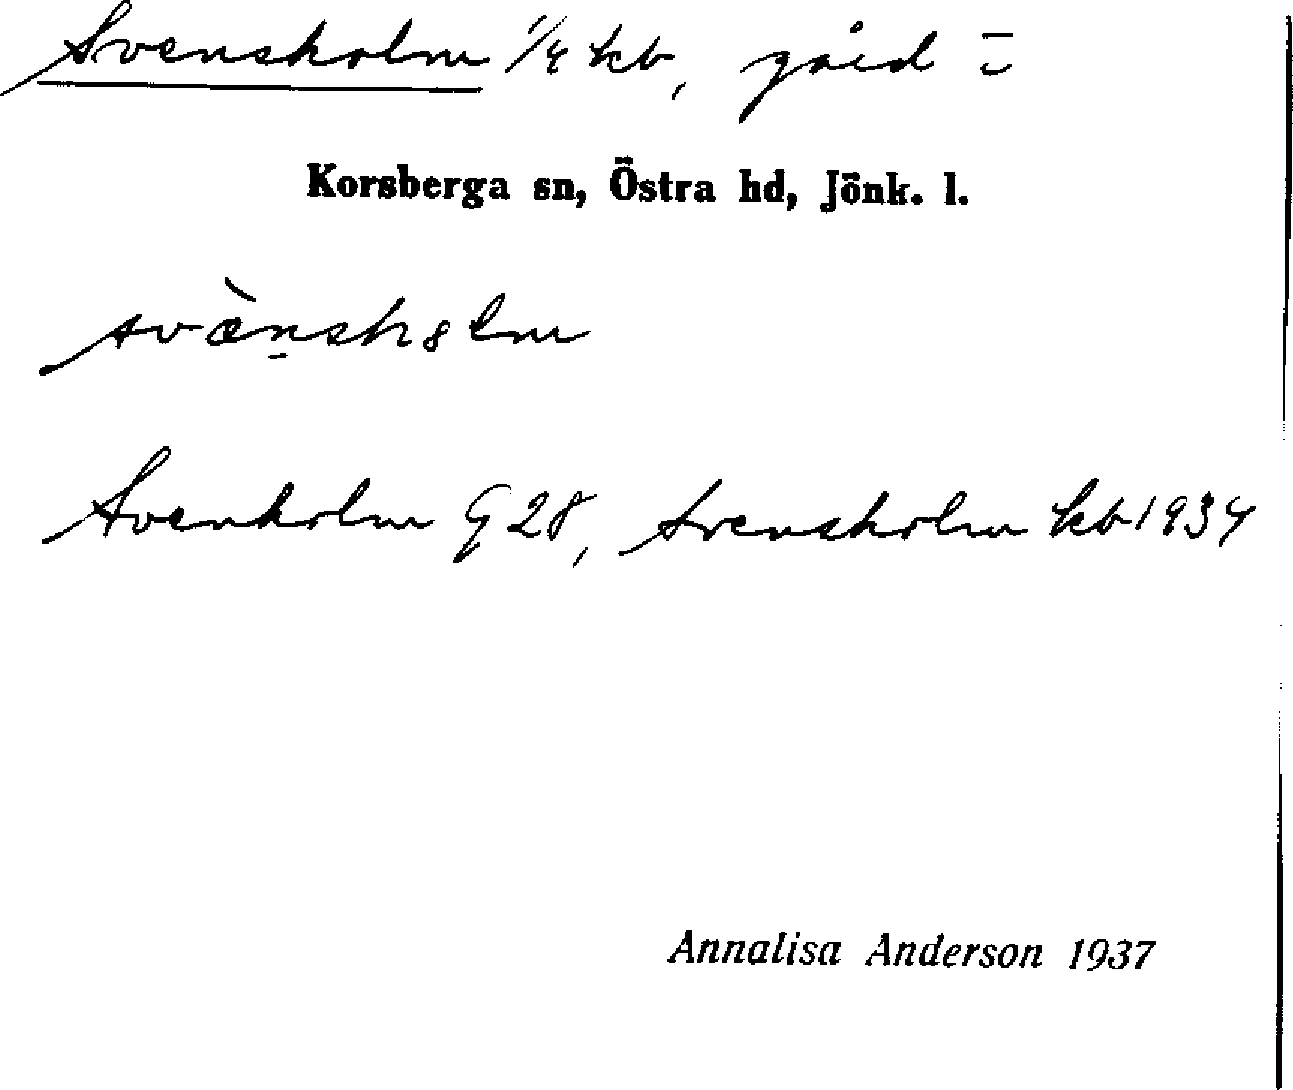 Svensholm 1/4 kb, gård
Korsberga sn, Östra hd, Jönk. l.
svæ̀nshȣlm
Svenholm G 28, Svensholm kb 1934
Annalisa Anderson 1937